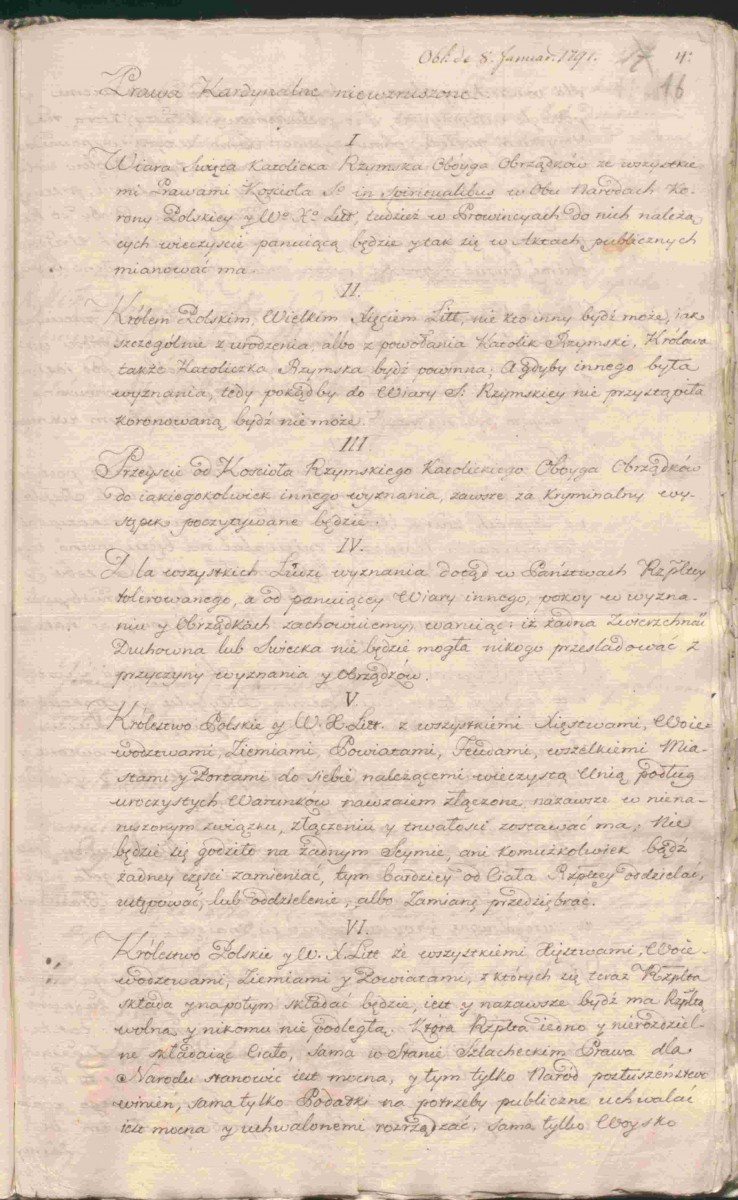 Obl: de 8. Januar. 1791. 17 4:
16
Prawa Kardynalne niewzruszone.
I
Wiara Swięta Katolicka Rzymska Oboyga Obrządków ze wszystkie
mi Prawami Kościoła So in spiritualibus w Obu Narodach Ko-
rony Polskiey y Wo Xo Litt, tudzież w Prowincyach do nich należą
cych wieczyscie panuiącą będzie y tak się w Aktach publicznych
mianować ma.
II.
Królem Polskim, Wielkim Xięciem Litt, nie kto inny bydź może, iak
szczegolnie z urodzenia, albo z powołania Katolik Rzymski, Królowa
także Katoliczka Rzymska bydź powinna, A gdyby innego była
wyznania, tedy pokądby do Wiary S. Rzymskiey nie przystąpiła
koronowaną bydź nie może.
III
Przeyscie od Kościoła Rzymskiego Katolickiego Oboyga Obrządków
do iakiegokolwiek innego wyznania, zawsze za kryminalny wy-
stępek poczytywane będzie.
IV.
Dla wszystkich Ludzi wyznania dotąd w Państwach Rzpltey
tolerowanego, a od panuiącey Wiary innego, pokoy w wyzna-
niu y Obrządkach zachowuiemy, waruiąc: iż żadna Zwierzchność
Duchowna lub Swiecka nie będzie mogła nikogo przesladować z
przyczyny wyznania y Obrządków.
V
Królestwo Polskie y W. X. Litt. z wszystkiemi Xięstwami, Woie-
wodztwami, Ziemiami, Powiatami, Feudami, wszelkiemi Mia-
stami y Portami do siebie należącemi wieczystą Unią podług
uroczystych Warunków nawzaiem złączone, nazawsze w niena-
ruszonym związku, złączeniu y trwałości zostawać ma, Nie
będzie się godziło na żadnym Seymie, ani komużkolwiek bądź
żadney części zamieniać, tym bardziey od Ciała Rzpltey oddzielać,
ustępować, lub oddzielenie, albo Zamianę przedsiębrać.
VI.
Królestwo Polskie y W. X. Litt ze wszystkiemi Xięstwami, Woie-
wodztwami, Ziemiami y Powiatami, z których się teraz Rzplta
składa y napotym składać będzie, iest y nazawsze bydź ma Rzpltą
wolną y nikomu nie podległą. Która Rzplta iedno y nierozdziel-
ne składaiąc Ciało, sama w Stanie Szlacheckim Prawa dla
Narodu stanowić iest mocna, y tym tylko Naród posłuszeństwo
winien, sama tylko Podatki na potrzeby publiczne uchwalać
iest mocna y uchwalonemi rozrządzać, sama tylko Woysko